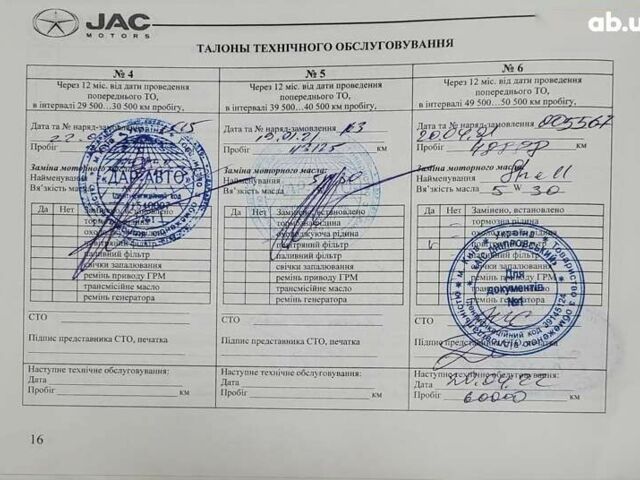 JAC
MOTORS
ab.u
ТАЛОНЫ ТЕХНІЧНОГО ОБСЛУГОВУВАННЯ
№ 4
Через 12 міс. від дати проведення
попереднього ТО,
в інтервалі 29 500…30 500 км пробігу,
Дата та № наряд-замовлення
Пробіг
Заміна моторного масла:
Найменування
В'язкість масла
Да Нет Замінено, встановлено
тормозна рідина
повітряний фільтр
паливний фільтр
свічки запалювання
ремінь приводу ГРМ
трансмісійне масло
ремінь генератора
СТО
Підпис представника СТО, печатка
Наступне технічне обслуговування:
Дата
Пробіг км
№ 5
Через 12 міс. від дати проведення
попереднього ТО,
в інтервалі 39 500…40 500 км пробігу,
Дата та № наряд-замовлення
Пробіг км
Заміна моторного масла:
Найменування
В'язкість масла
Да Нет Замінено, встановлено
тормозна рідина
охолоджуюча рідина
повітряний фільтр
паливний фільтр
свічки запалювання
ремінь приводу ГРМ
трансмісійне масло
ремінь генератора
СТО
Підпис представника СТО, печатка
Наступне технічне обслуговування:
Дата
Пробіг км
№ 6
Через 12 міс. від дати проведення
попереднього ТО,
в інтервалі 49 500…50 500 км пробігу,
Дата та № наряд-замовлення 005567
20.04.21
Пробіг км
Заміна моторного масла:
Найменування Shell
В'язкість масла 5 W 30
Да Нет Замінено, встановлено
тормозна рідина
Україна
Для
документів
№1
СТО
Підпис представника
Наступне технічне обслуговування:
Дата 20.04.22
Пробіг 60000 км
ДАР-АВТО
16